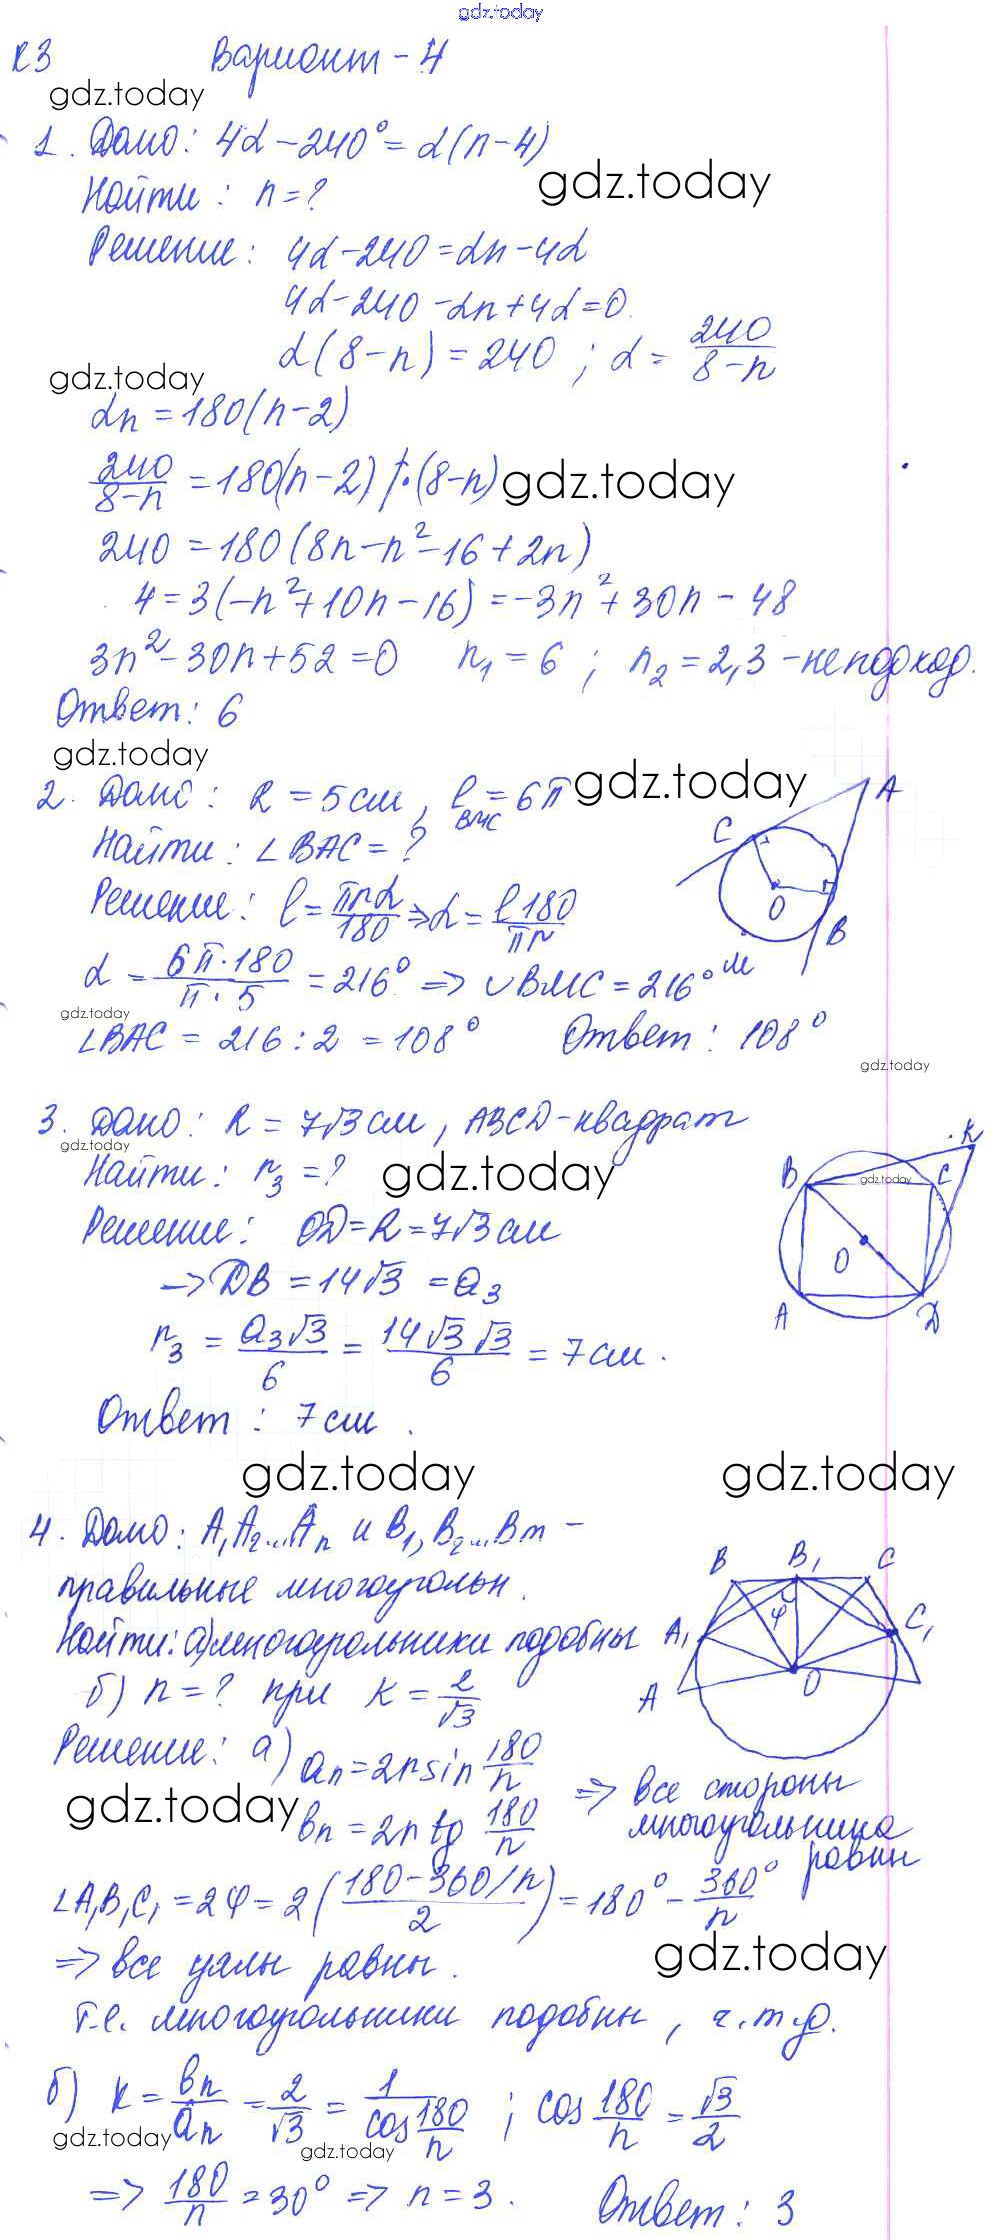 gdz.today
К3 Вариант - 4
gdz.today
1. Дано: 4α - 240° = α(n-4)
gdz.today
Найти: n = ?
Решение: 4α - 240 = αn - 4α
4α - 240 - αn + 4α = 0.
α(8-n) = 240 ; α = 240/(8-n)
gdz.today
αn = 180(n-2)
240/(8-n) = 180(n-2) /·(8-n)
gdz.today
240 = 180(8n - n² - 16 + 2n)
4 = 3(-n² + 10n - 16) = -3n² + 30n - 48
3n² - 30n + 52 = 0 n₁ = 6 ; n₂ = 2,3 - не подход.
Ответ: 6
gdz.today
2. Дано: R = 5 см, l_BMC = 6π
gdz.today
A
C
O
B
M
Найти: ∠BAC = ?
Решение: l = πrα/180 ⇒ α = l180/πr
α = 6π·180/π·5 = 216° ⇒ ∪BMC = 216°
gdz.today
∠BAC = 216 : 2 = 108° Ответ: 108°
gdz.today
3. Дано: R = 7√3 см, ABCD - квадрат
gdz.today
Найти: r₃ = ?
gdz.today
K
B
gdz.today
C
O
A
D
Решение: OD = R = 7√3 см
→ DB = 14√3 = a₃
r₃ = a₃√3/6 = 14√3√3/6 = 7 см.
Ответ: 7 см.
gdz.today
gdz.today
4. Дано: A₁A₂...Aₙ и B₁, B₂...Bn -
правильные многоугольн.
B
B₁
C
A₁
φ
C₁
A
O
Найти: а) многоугольники подобны
б) n = ? при K = 2/√3
Решение: а) aₙ = 2r sin 180/n
gdz.today
bₙ = 2r tg 180/n
⇒ все стороны
многоугольника
равны
∠A₁B₁C₁ = 2φ = 2((180 - 360/n)/2) = 180° - 360°/n
gdz.today
⇒ все углы равны.
т.е. многоугольники подобны, ч.т.д.
б) K = bₙ/aₙ = 2/√3 = 1/cos 180/n ; cos 180/n = √3/2
gdz.today
gdz.today
⇒ 180/n = 30° ⇒ n = 3. Ответ: 3